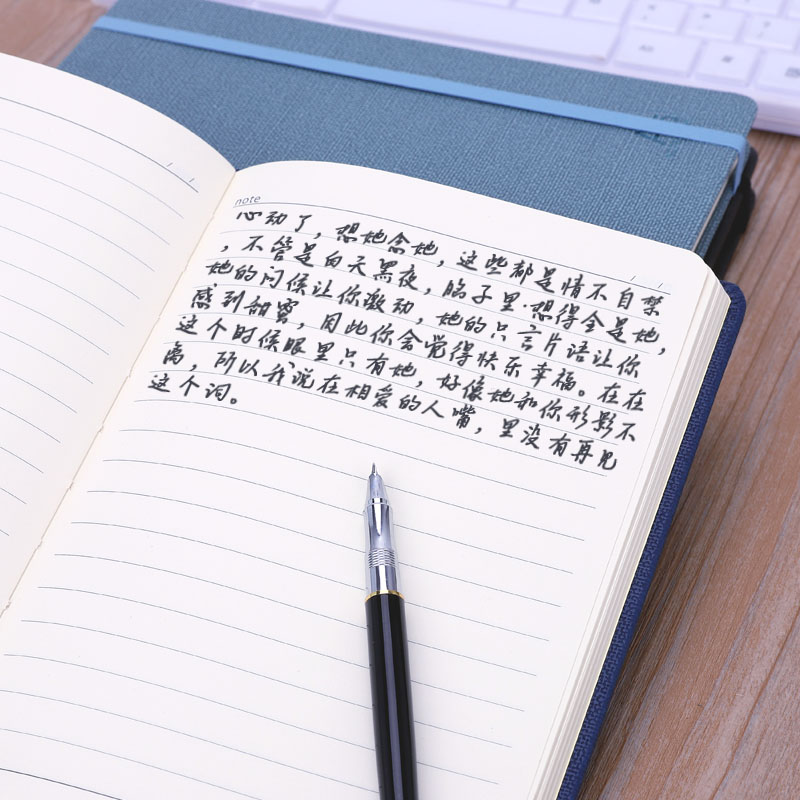 note
心动了，想她念她，这些都是情不自禁
，不管是白天黑夜，脑子里·想得全是她，
她的问候让你激动，她的只言片语让你
感到甜蜜，因此你会觉得快乐幸福。在在
这个时候眼里只有她，好像她和你形影不
离，所以我说在相爱的人嘴，里没有再见
这个词。